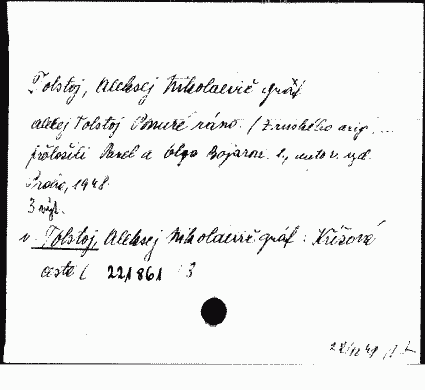 Tolstoj, Aleksej Nikolaevič gráf
Alexej Tolstoj Ponuré ráno. (Z ruského orig. ...
přeložili Pavel a Olga Bojarovi. 1., autoris. vyd.
Praha, 1948.
3
v Tolstoj, Aleksej Nikolaevič gráf: Křížová
cesta ( 221861 3